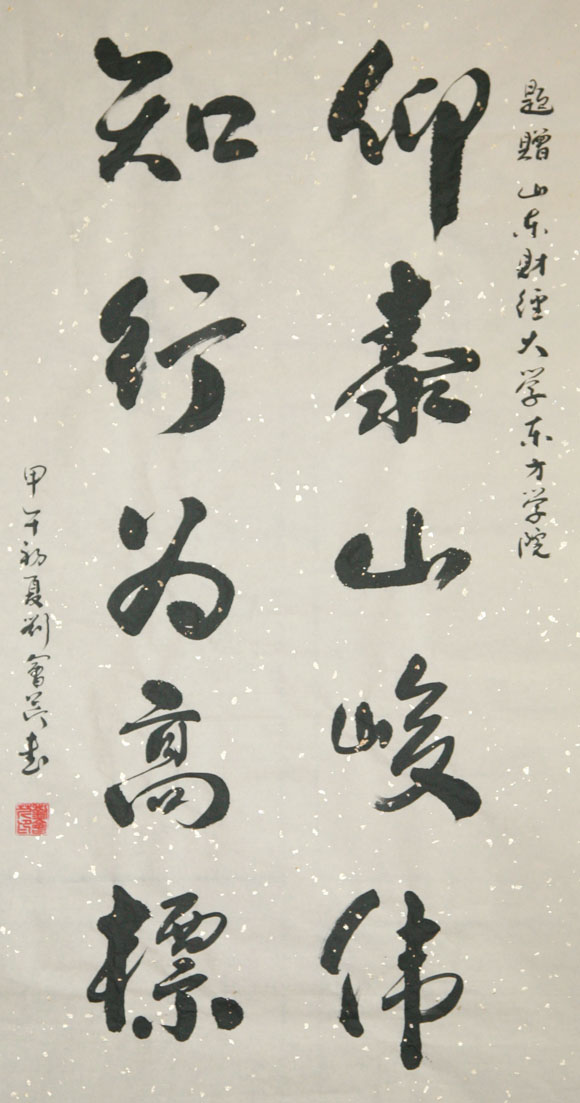 题贈山东財經大学东方学院
仰泰山峻伟
知行为高標
甲午初夏刘會书